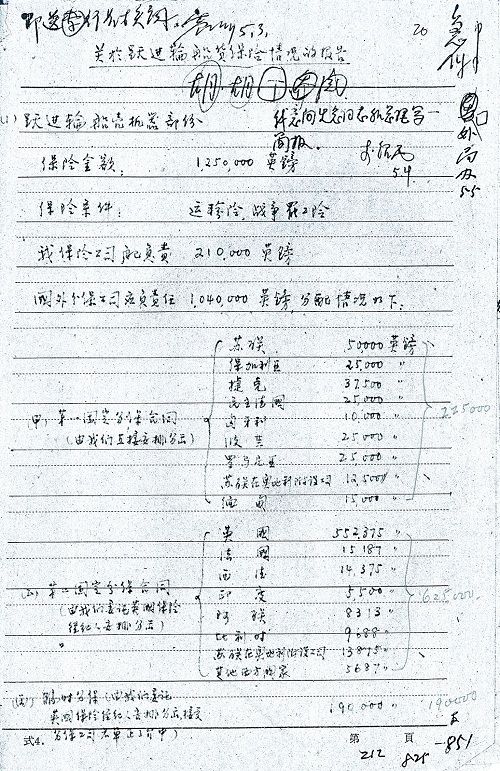 即送 行 核阅。 5.3.
20
急件
关于跃进轮船货保险情况的报告
胡 胡
国外局办
5.5
(1) 跃进轮船壳机器部份
简报。
5.4
保险金额: 1,250,000 英镑
保险条件: 运输险,战争罢工险
我保险公司应负责 210,000 英镑
国外分保公司应负责任 1,040,000 英镑,分配情况如下:
苏联 50,000 英镑
保加利亚 25,000 〃
捷克 37,500 〃
民主德国 25,000 〃
匈牙利 10,000 〃
(甲) 第一固定分保合同
(由我们直接安排分出)
225000
波兰 25,000 〃
罗马尼亚 25,000 〃
苏联在奥地利附设公司 12,500 〃
缅甸 15,000 〃
英国 552,375 〃
法国 15,187 〃
西德 14,375 〃
(乙) 第二固定分保合同
(由我们委托英国保险
经纪人安排分出)
〃
625000.
印度 5,500 〃
阿联 8,313 〃
比利时 9,688 〃
苏联在奥地利附设公司 13,875 〃
其他西方国家 5,687 〃
(丙) 临时分保(由我们委托
英国保险经纪人安排分出,接受
分保公司名单正了解中)
190,000 〃
190000
式4.
第 頁
212
825 -851